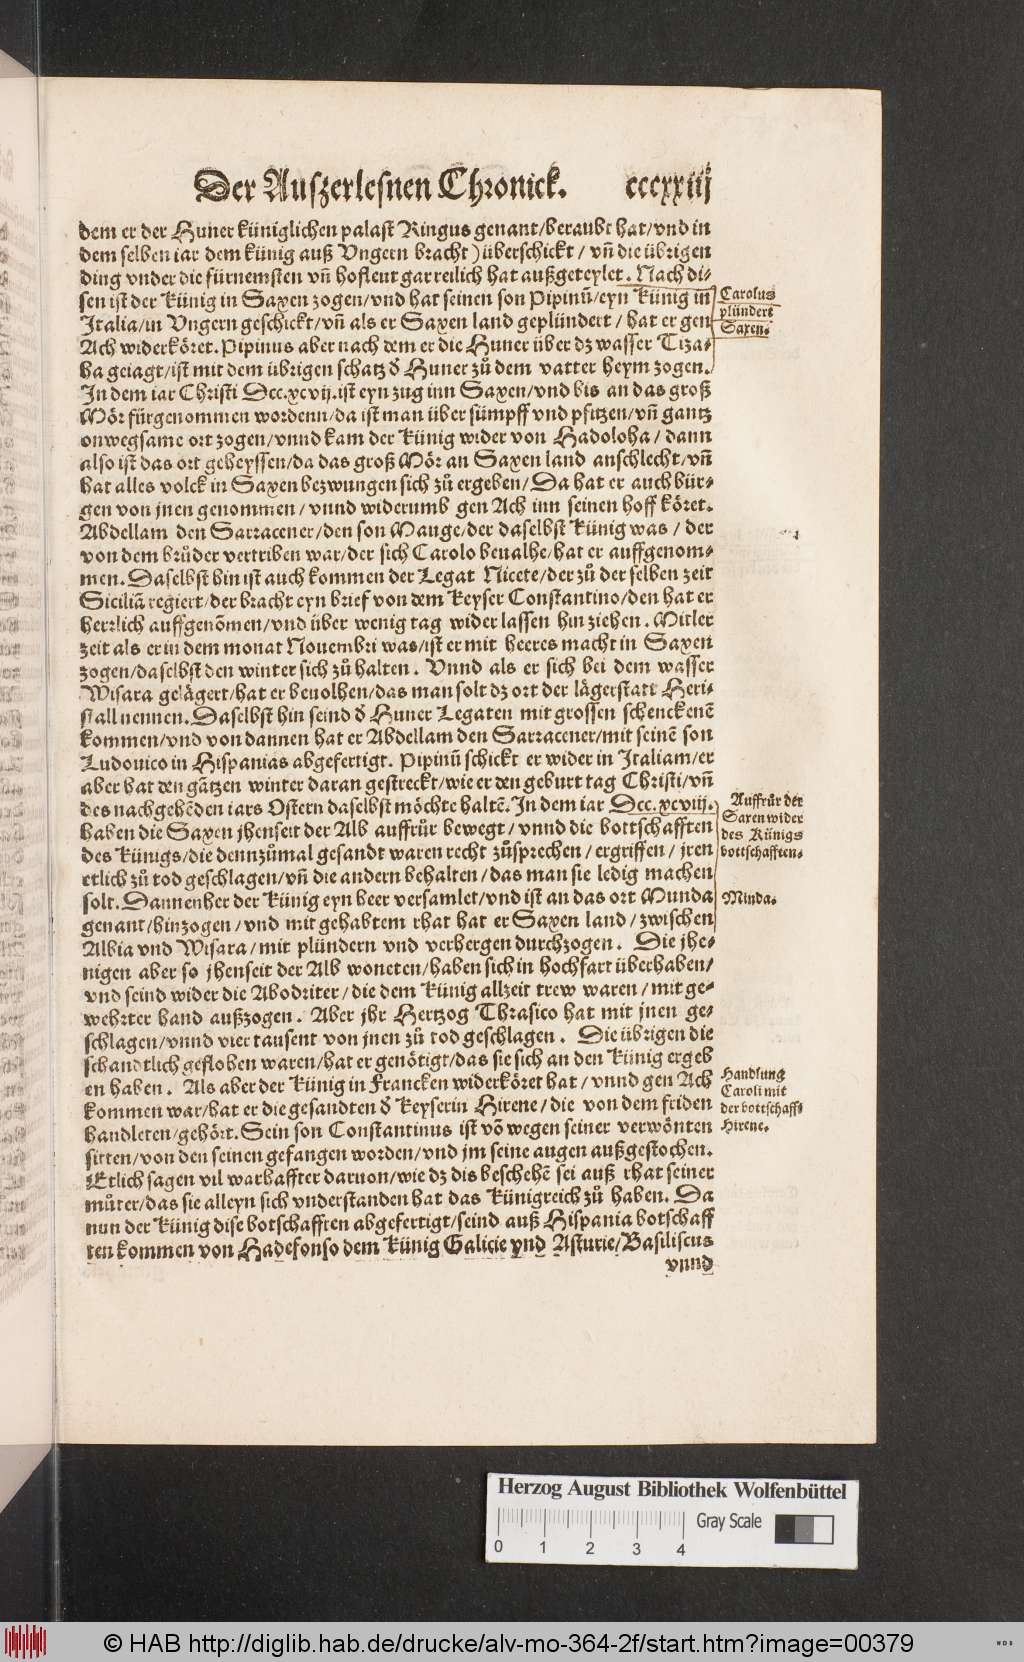 Der Auszerlesnen Chronick. cccxxiij
dem er der Huner küniglichen palast Ringus genant/beraubt hat/vnd in
dem selben iar dem künig auß Vngern bracht) überschickt/ vñ die übrigen
ding vnder die fürnemsten vñ hofleut gar reilich hat außgeteylet. Nach di-
sen ist der Künig in Saxen zogen/vnd hat seinen son Pipinũ/eyn Künig in
Italia/in Vngern geschickt/vñ als er Saxen land geplündert/ hat er gen
Ach widerköret. Pipinus aber nach dem er die Huner über dz wasser Tiza-
ha geiagt/ist mit dem übrigen schatz d̕ Huner zů dem vatter heym zogen.
Carolus
plündert
Saxen.
In dem iar Christi Dcc.xcvij. ist eyn zug inn Saxen/vnd bis an das groß
Mör fürgenommen wordenn/da ist man über sümpff vnd pfitzen/vñ gantz
onwegsame ort zogen/vnnd kam der Künig wider von Hadoloha/ dann
also ist das ort geheyssen/da das groß Mör an Saxen land anschlecht/vñ
hat alles volck in Saxen bezwungen sich zů ergeben/ Da hat er auch bür-
gen von jnen genommen/ vnnd widerumb gen Ach inn seinen hoff köret.
Abdellam den Sarracener/den son Mauge/der daselbst Künig was/ der
von dem brůder vertriben war/der sich Carolo beualhe/hat er auffgenom-
men. Daselbst hin ist auch kommen der Legat Nicete/der zů der selben zeit
Siciliã regiert/der bracht eyn brief von dem Keyser Constantino/den hat er
herrlich auffgenõmen/vnd über wenig tag wider lassen hin ziehen. Mitler
zeit als er in dem monat Nouembri was/ist er mit heeres macht in Saxen
zogen/daselbst den winter sich zů halten. Vnnd als er sich bei dem wasser
Wisara gelägert/hat er beuolhen/das man solt dz ort der lägerstatt Heri-
stall nennen. Daselbst hin seind d̕ Huner Legaten mit grossen schenckenẽ
kommen/vnd von dannen hat er Abdellam den Sarracener/mit seinẽ son
Ludouico in Hispanias abgefertigt. Pipinũ schickt er wider in Italiam/er
aber hat den gãtzen winter daran gestreckt/wie er den geburt tag Christi/vñ
des nachgehẽden iars Ostern daselbst möchte haltẽ. In dem iar Dcc.xcviij.
haben die Saxen jhenseit der Alb auffrůr bewegt/ vnnd die bottschafften
des Künigs/die dennzůmal gesandt waren recht zůsprechen/ ergriffen/ jren
etlich zů tod geschlagen/vñ die andern behalten/das man sie ledig machen
solt. Dannenher der Künig eyn heer versamlet/vnd ist an das ort Munda
genant/hinzogen/vnd mit gehabtem rhat hat er Saxen land/zwischen
Albia vnd Wisara/mit plündern vnd verhergen durchzogen. Die jhe-
Auffrůr der
Saxen wider
des Künigs
bottschafften.
Minda.
nigen aber so jhenseit der Alb woneten/haben sich in hochfart überhaben/
vnd seind wider die Abodriter/die dem Künig allzeit trew waren/mit ge-
wehrter hand außzogen. Aber jhr Hertzog Thrasico hat mit jnen ge-
schlagen/vnnd vier tausent von jnen zů tod geschlagen. Die übrigen die
schandtlich geflohen waren/hat er genötigt/das sie sich an den Künig ergeb
en haben. Als aber der Künig in Francken widerköret hat/ vnnd gen Ach
kommen war/hat er die gesandten d̕ Keyserin Hirene/die von dem friden
handleten/gehört. Sein son Constantinus ist võ wegen seiner verwönten
sitten/von den seinen gefangen worden/vnd jm seine augen außgestochen.
Handlung
Caroli mit
der bottschafft
Hirene.
Etlich sagen vil warhaffter daruon/wie dz dis beschehẽ sei auß rhat seiner
můter/das sie alleyn sich vnderstanden hat das Künigreich zů haben. Da
nun der Künig dise botschafften abgefertigt/seind auß Hispania botschaff
ten kommen von Hadefonso dem Künig Galicie vnd Asturie/Basiliscus
vnnd
Herzog August Bibliothek Wolfenbüttel
Gray Scale
0 1 2 3 4
© HAB http://diglib.hab.de/drucke/alv-mo-364-2f/start.htm?image=00379